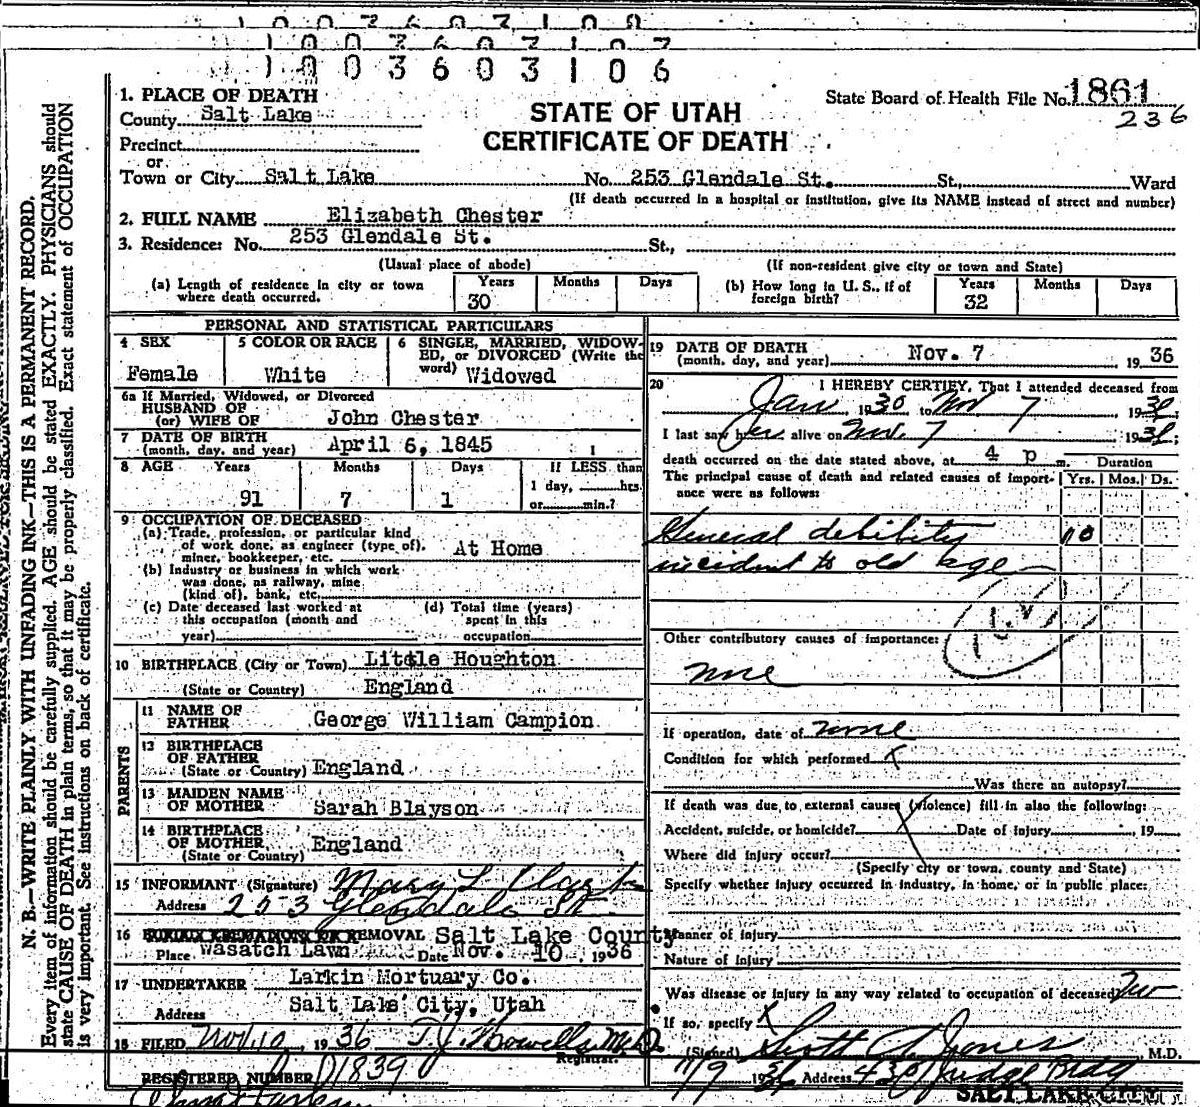 1003603106
1. PLACE OF DEATH
County Salt Lake
STATE OF UTAH
CERTIFICATE OF DEATH
State Board of Health File No. 1861
236
Precinct
or
Town or City Salt Lake No. 253 Glendale St. St., Ward
(If death occurred in a hospital or institution, give its NAME instead of street and number)
2. FULL NAME Elizabeth Chester
3. Residence: No. 253 Glendale St. St.,
(Usual place of abode) (If non-resident give city or town and State)
(a) Length of residence in city or town where death occurred. Years 30 Months Days
(b) How long in U. S., if of foreign birth? Years 32 Months Days
PERSONAL AND STATISTICAL PARTICULARS
4 SEX Female
5 COLOR OR RACE White
6 SINGLE, MARRIED, WIDOWED, or DIVORCED (Write the word) Widowed
6a If Married, Widowed, or Divorced
HUSBAND OF
(or) WIFE OF John Chester
7 DATE OF BIRTH
(month, day, and year) April 6, 1845
8 AGE Years 91 Months 7 Days 1
If LESS than
1 day, hrs.
or min.?
9 OCCUPATION OF DECEASED
(a) Trade, profession, or particular kind
of work done, as engineer (type of),
miner, bookkeeper, etc. At Home
(b) Industry or business in which work
was done, as railway, mine
(kind of), bank, etc.
(c) Date deceased last worked at
this occupation (month and
year)
(d) Total time (years)
spent in this
occupation
10 BIRTHPLACE (City or Town) Little Houghton
(State or Country) England
PARENTS
11 NAME OF
FATHER George William Campion
12 BIRTHPLACE
OF FATHER
(State or Country) England
13 MAIDEN NAME
OF MOTHER Sarah Blayson
14 BIRTHPLACE
OF MOTHER
(State or Country) England
15 INFORMANT (Signature) Mary L Clark
Address 253 Glendale St.
16 REMOVAL Salt Lake County
Place Wasatch Lawn Date Nov. 10, 1936
17 UNDERTAKER Larkin Mortuary Co.
Address Salt Lake City, Utah
18 FILED Nov 10 1936 T. J. Howells M.D.
Registrar.
REGISTERED NUMBER D1839
19 DATE OF DEATH
(month, day, and year) Nov. 7 1936
20 I HEREBY CERTIFY, That I attended deceased from
Jan 1930 to Nov 7 1936
I last saw her alive on Nov. 7 1936;
death occurred on the date stated above, at 4 p m.
The principal cause of death and related causes of importance were as follows:
Duration
Yrs. Mos. Ds.
General debility 10
incident to old age
Other contributory causes of importance:
none
If operation, date of none
Condition for which performed x
Was there an autopsy?
If death was due to external causes (violence) fill in also the following:
Accident, suicide, or homicide? Date of injury 19
Where did injury occur?
(Specify city or town, county and State)
Specify whether injury occurred in industry, in home, or in public place:
Manner of injury
Nature of injury
Was disease or injury in any way related to occupation of deceased? no
If so, specify x
(Signed) Scott A Jones M.D.
11/9 1936 Address 430 Judge Bldg
SALT LAKE CITY
N. B.—WRITE PLAINLY WITH UNFADING INK—THIS IS A PERMANENT RECORD.
Every item of information should be carefully supplied. AGE should be stated EXACTLY. PHYSICIANS should
state CAUSE OF DEATH in plain terms, so that it may be properly classified. Exact statement of OCCUPATION
is very important. See instructions on back of certificate.